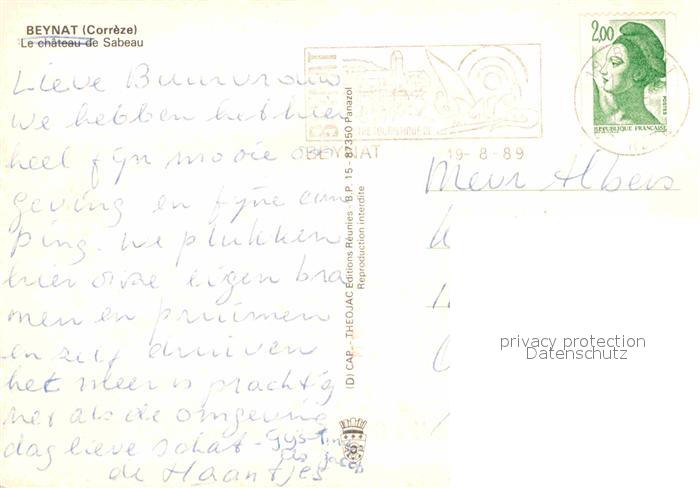 BEYNAT (Corrèze)
Le château de Sabeau
Lieve Buurvrouw
we hebben het hier
heel fijn mooie om
geving en fijne cam
ping. We plukken
hier onze eigen bra
men en pruimen
en zelf druiven
het meer is prachtig
net als de omgeving
dag lieve schat - Gijs-
de Haantjes
(D) CAP. - THEOJAC Editions Réunies - B.P. 15 - 87350 Panazol
Reproduction interdite
BEYNAT
BEYNAT 19-8-89
2,00
POSTES
REPUBLIQUE FRANÇAISE
Mevr Albers
privacy protection
Datenschutz